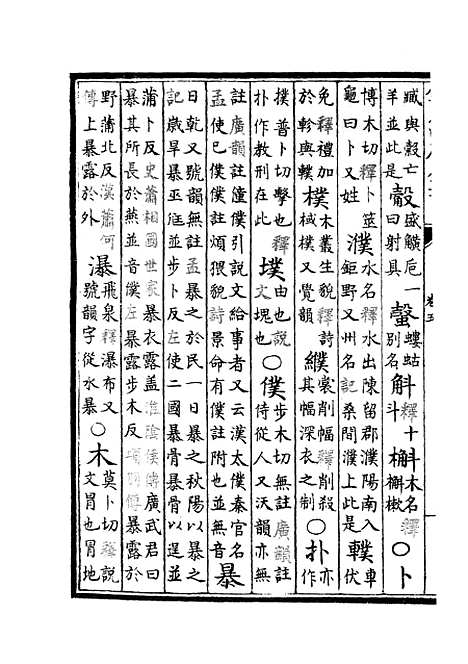 臧與穀亡羊並此是觳盛觵卮一曰射具螜螻蛄别名斛釋十斗槲木名釋槲樕○卜
博木切釋卜筮龜曰卜又姓濮水名釋水出陳留郡濮陽南入鉅野又州名記桑間濮上此是轐車伏
兔釋禮加於軫與轐樸木叢生貌釋詩棫樸又覺韻纀裳削幅釋削殺其幅深衣之制○扑亦作
撲普卜切擊也釋扑作教刑在此墣由也説文塊也○僕步木切無註廣韻註侍從人又沃韻亦無
註廣韻註僮僕引説文給事者又云漢太僕秦官名孟使已僕僕註煩猥貌詩景命有僕註附也並無音暴
日乾又號韻無註孟暴之於民一日暴之秋陽以暴之記歲旱暴巫尫並步卜反左使二國暴骨暴骨以逞並
蒲卜反史蕭相國世家暴衣露蓋淮陰侯傳廣武君曰暴其所長於燕並音僕左暴露步木反項羽傳暴露於
野蒲北反漢蕭何傳上暴露於外瀑飛泉釋瀑布又號韻字從水暴○木莫卜切釋說文冒也冒地